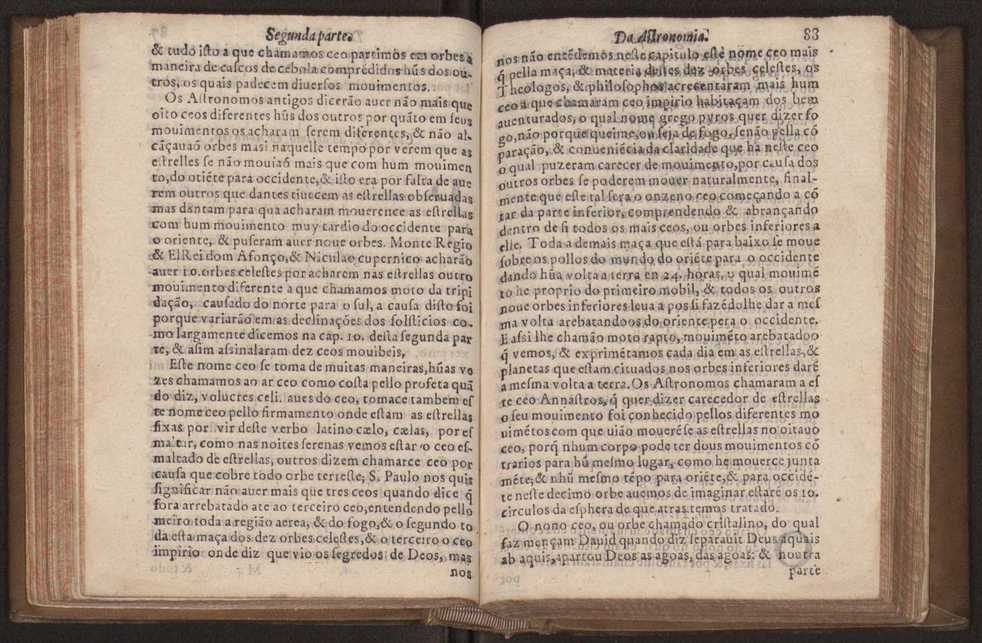 Segunda parte.
& tudo isto a que chamamos ceo partimos em orbes a
maneira de cascos de cebola comprẽdidos hũs dos ou-
tros, os quais padecem diuersos mouimentos.
Os Astronomos antigos dicerão auer não mais que
oito ceos diferentes hũs dos outros por quãto em seus
mouimentos os acharam serem diferentes, & não al-
cãçauaõ orbes mais naquelle tempo por verem que as
estrelles se não mouiaõ mais que com hum mouimen
to, do oriẽte para occidente, & isto era por falta de aue
rem outros que dantes tiuecem as estrellas obseruadas
mas dantam para qua acharam mouerence as estrellas
com hum mouimento muy tardio do occidente para
o oriente, & puseram auer noue orbes. Monte Regio
& ElRei dom Afonço, & Niculao cupernico acharão
auer 10. orbes celestes por acharem nas estrellas outro
mouimento diferente a que chamamos moto da tripi
dação, causado do norte para o sul, a causa disto foi
porque variarão em as declinações dos solsticios co-
mo largamente dicemos na cap. 10. desta segunda par
te, & asim assinalaram dez ceos mouibeis,
Este nome ceo se toma de muitas maneiras, hũas ve
zes chamamos ao ar ceo como costa pello profeta quã
do diz, volucres celi. aues do ceo, tomace tambem es
te nome ceo pello firmamento onde estam as estrellas
fixas por vir deste verbo latino cælo, cælas, por es
maltar, como nas noites serenas vemos estar o ceo es-
maltado de estrellas, outros dizem chamarce ceo por
causa que cobre todo orbe terreste, S. Paulo nos quis
significar não auer mais que tres ceos quando dice q̃
fora arrebatado ate ao terceiro ceo, entendendo pello
meiro toda a região aerea, & do fogo, & o segundo to
da esta maça dos dez orbes celestes, & o terceiro o ceo
impirio onde diz que vio os segredos de Deos, mas
nos
Da Astronomia. 83
nos não entẽdemos neste capitulo este nome ceo mais
q̃ pella maça, & materia destes dez orbes celestes, os
Theologos, & philosophos acresentaram mais hum
ceo a que chamaram ceo impirio habitaçam dos bem
auenturados, o qual nome grego pyros quer dizer fo
go, não porque queime, ou seja de fogo, senão pella cõ
paração, & conueniẽcia da claridade que ha neste ceo
o qual puzeram carecer de mouimento, por causa dos
outros orbes se poderem mouer naturalmente, final-
mente que este tal sera o onzeno ceo começando a cõ
tar da parte inferior, comprendendo & abrançando
dentro de si todos os mais ceos, ou orbes inferiores a
elle. Toda a demais maça que está para baixo se moue
sobre os pollos do mundo do oriẽte para o occidente
dando hũa volta a terra en 24. horas, o qual mouimẽ
to he proprio do primeiro mobil, & todos os outros
noue orbes inferiores leua a pos si fazẽdolhe dar a mes
ma volta arebatandoos do oriente pera o occidente.
E assi lhe chamão moto rapto, mouimẽto arebatadoo
q̃ vemos, & exprimẽtamos cada dia em as estrellas, &
planetas que estam cituados nos orbes inferiores darẽ
a mesma volta a terra. Os Astronomos chamaram a es
te ceo Annastros, q̃ quer dizer carecedor de estrellas
o seu mouimento foi conhecido pellos diferentes mo
uimẽtos com que uião mouerẽse as estrellas no oitauo
ceo, porq̃ nhum corpo pode ter dous mouimentos cõ
trarios para hũ mesmo lugar, como he mouerce junta
mẽte, & nhũ mesmo tẽpo para oriẽte, & para occidẽ-
te neste decimo orbe auemos de imaginar estarẽ os 10.
circulos da esphera de que atras temos tratado.
O nono ceo, ou orbe chamado cristalino, do qual
faz mençam Dauid quando diz separauit Deus aquas
ab aquis, apartou Deos as agoas, das agoas: & houtra
parte